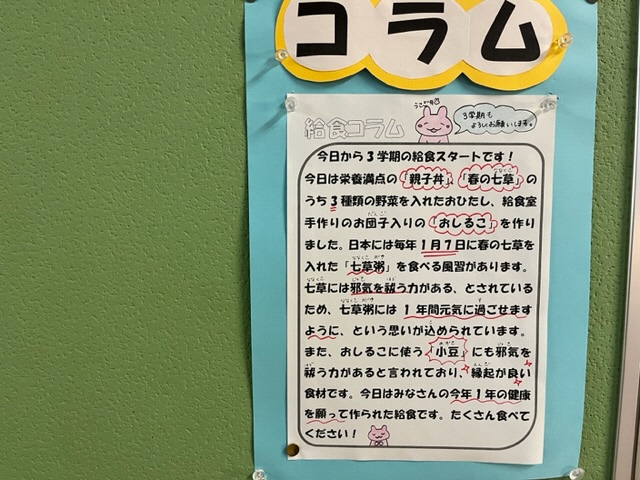 コラム
給食コラム
3学期も
よろしくお願いします。
今日から3学期の給食スタートです！
今日は栄養満点の「親子丼」、「春の七草」の
うち3種類の野菜を入れたおひたし、給食室
手作りのお団子入りの「おしるこ」を作り
ました。日本には毎年1月7日に春の七草を
入れた「七草粥」を食べる風習があります。
七草には邪気を祓う力がある、とされている
ため、七草粥には1年間元気に過ごせます
ように、という思いが込められています。
また、おしるこに使う「小豆」にも邪気を
祓う力があると言われており、縁起が良い
食材です。今日はみなさんの今年1年の健康
を願って作られた給食です。たくさん食べて
ください！